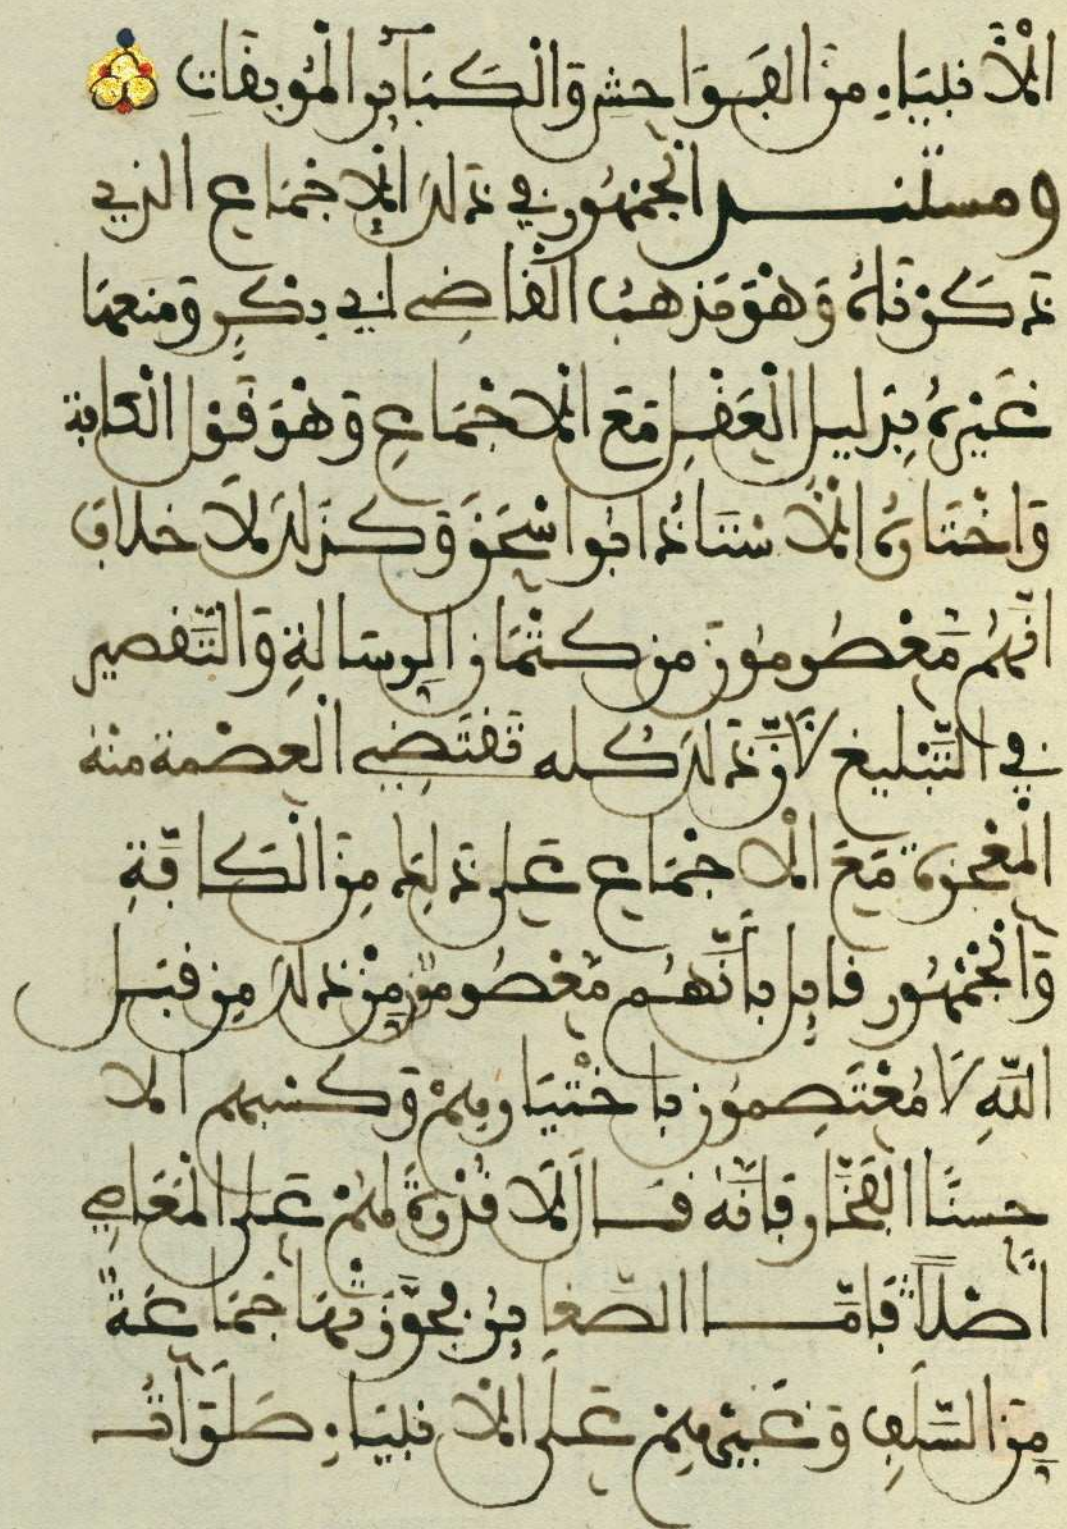 الْأَنبِيَاءِ مِنَ الفَوَاحِشِ وَالْكَبَائِرِ الْمُوبِقَاتِ
ومستند الْجُمْهُورِ فِي ذَلِكَ الْإِجْمَاعُ الذي
ذَكَرْنَاهُ وَهْوَ مَذهبُ الْقَاضِي أبي بَكْرٍ وَمنعهَا
غَيْرُهُ بِدَلِيلِ الْعَقْلِ مَعَ الْإِجْمَاعِ وَهْوَ قَوْلُ الْكَافة
وَاخْتَارَهُ الْأُسْتَاذُ أَبُو إسْحَقَ وَكَذَلِكَ لَا خلافَ
أَنَّهُمْ مَعْصُومُونَ مِن كِتْمَانِ الرِسَالَةِ وَالتَّقصِيرِ
فِي التَّبْلِيغِ لِأَنَّ ذَلِكَ كُله تَقْتَضِي الْعِصْمَة مِنْهُ
الْمُعْجِزَةُ مَعَ الْإِجْمَاعِ عَلَى ذَلِكَ مِنَ الْكَافَّةِ
وَالْجُمْهُورِ قائل بِأَنَّهُم مَعْصُومُونَ مِنْ ذَلِكَ مِن قِبَل
اللهِ لَا مُعْتَصِمُونَ بِاخْتِيَارِهِمْ وَكَسْبِهِم الا
حسينًا النجَّارَ فَإِنَّهُ قَالَ لَا قُدْرَةَ لَهُمْ عَلَى الْمَعَاصِي
أَصْلاً فَأَمَّا الصَّغَائِرُ فَجَوَّزَهَا جَمَاعَةٌ
مِنَ السَّلَفِ وَغَيْرِهِمْ عَلَى الْأَنبِيَاءِ صَلَوَاتُ